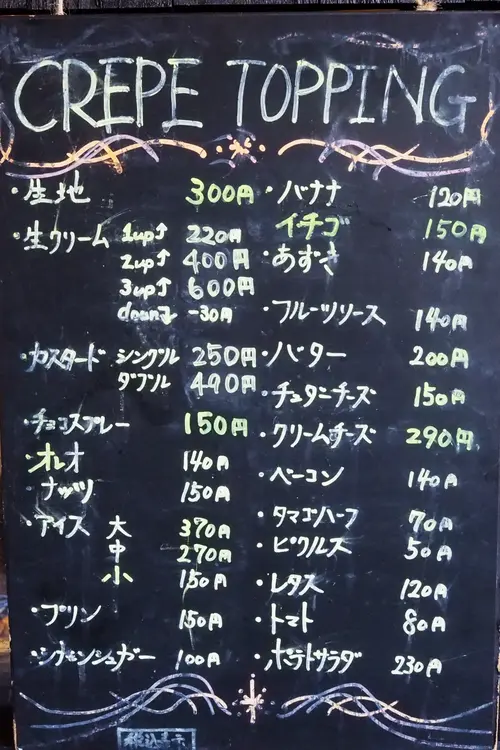 CREPE TOPPING
・生地 300円
・生クリーム 1up↑ 220円
2up↑ 400円
3up↑ 600円
down↓ -30円
・カスタード シングル 250円
ダブル 490円
・チョコスプレー 150円
・オレオ 140円
・ナッツ 150円
・アイス 大 370円
中 270円
小 150円
・プリン 150円
・シナモンシュガー 100円
・バナナ 120円
イチゴ 150円
・あずき 140円
・フルーツソース 140円
・バター 200円
・チェダーチーズ 150円
・クリームチーズ 290円
・ベーコン 140円
・タマゴハーフ 70円
・ピクルス 50円
・レタス 120円
・トマト 80円
・ポテトサラダ 230円
税込表示